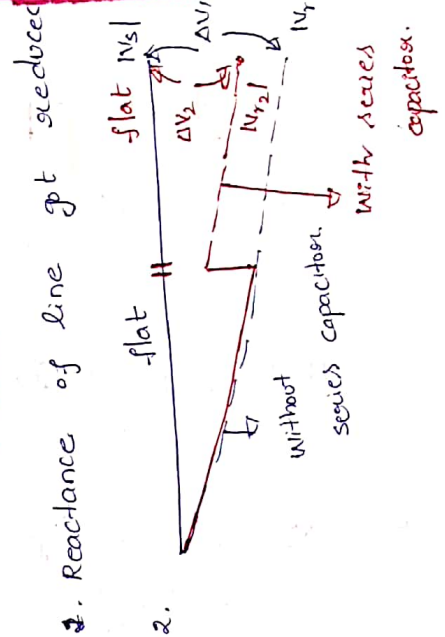 1. Reactance of line got reduced
2.
flat
flat
|Vs|
ΔV1
ΔV2
|Vr2|
|Vr
Without
series capacitor.
With series
capacitor.